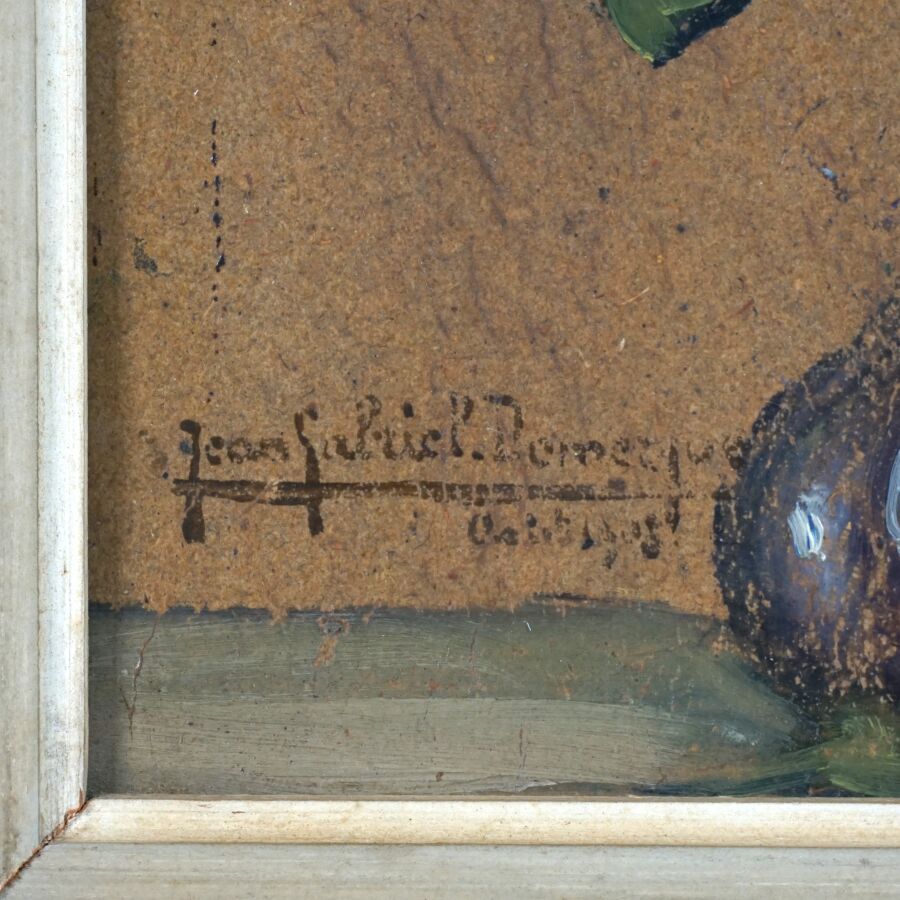 Jean Gabriel. Domergue
Août 1905